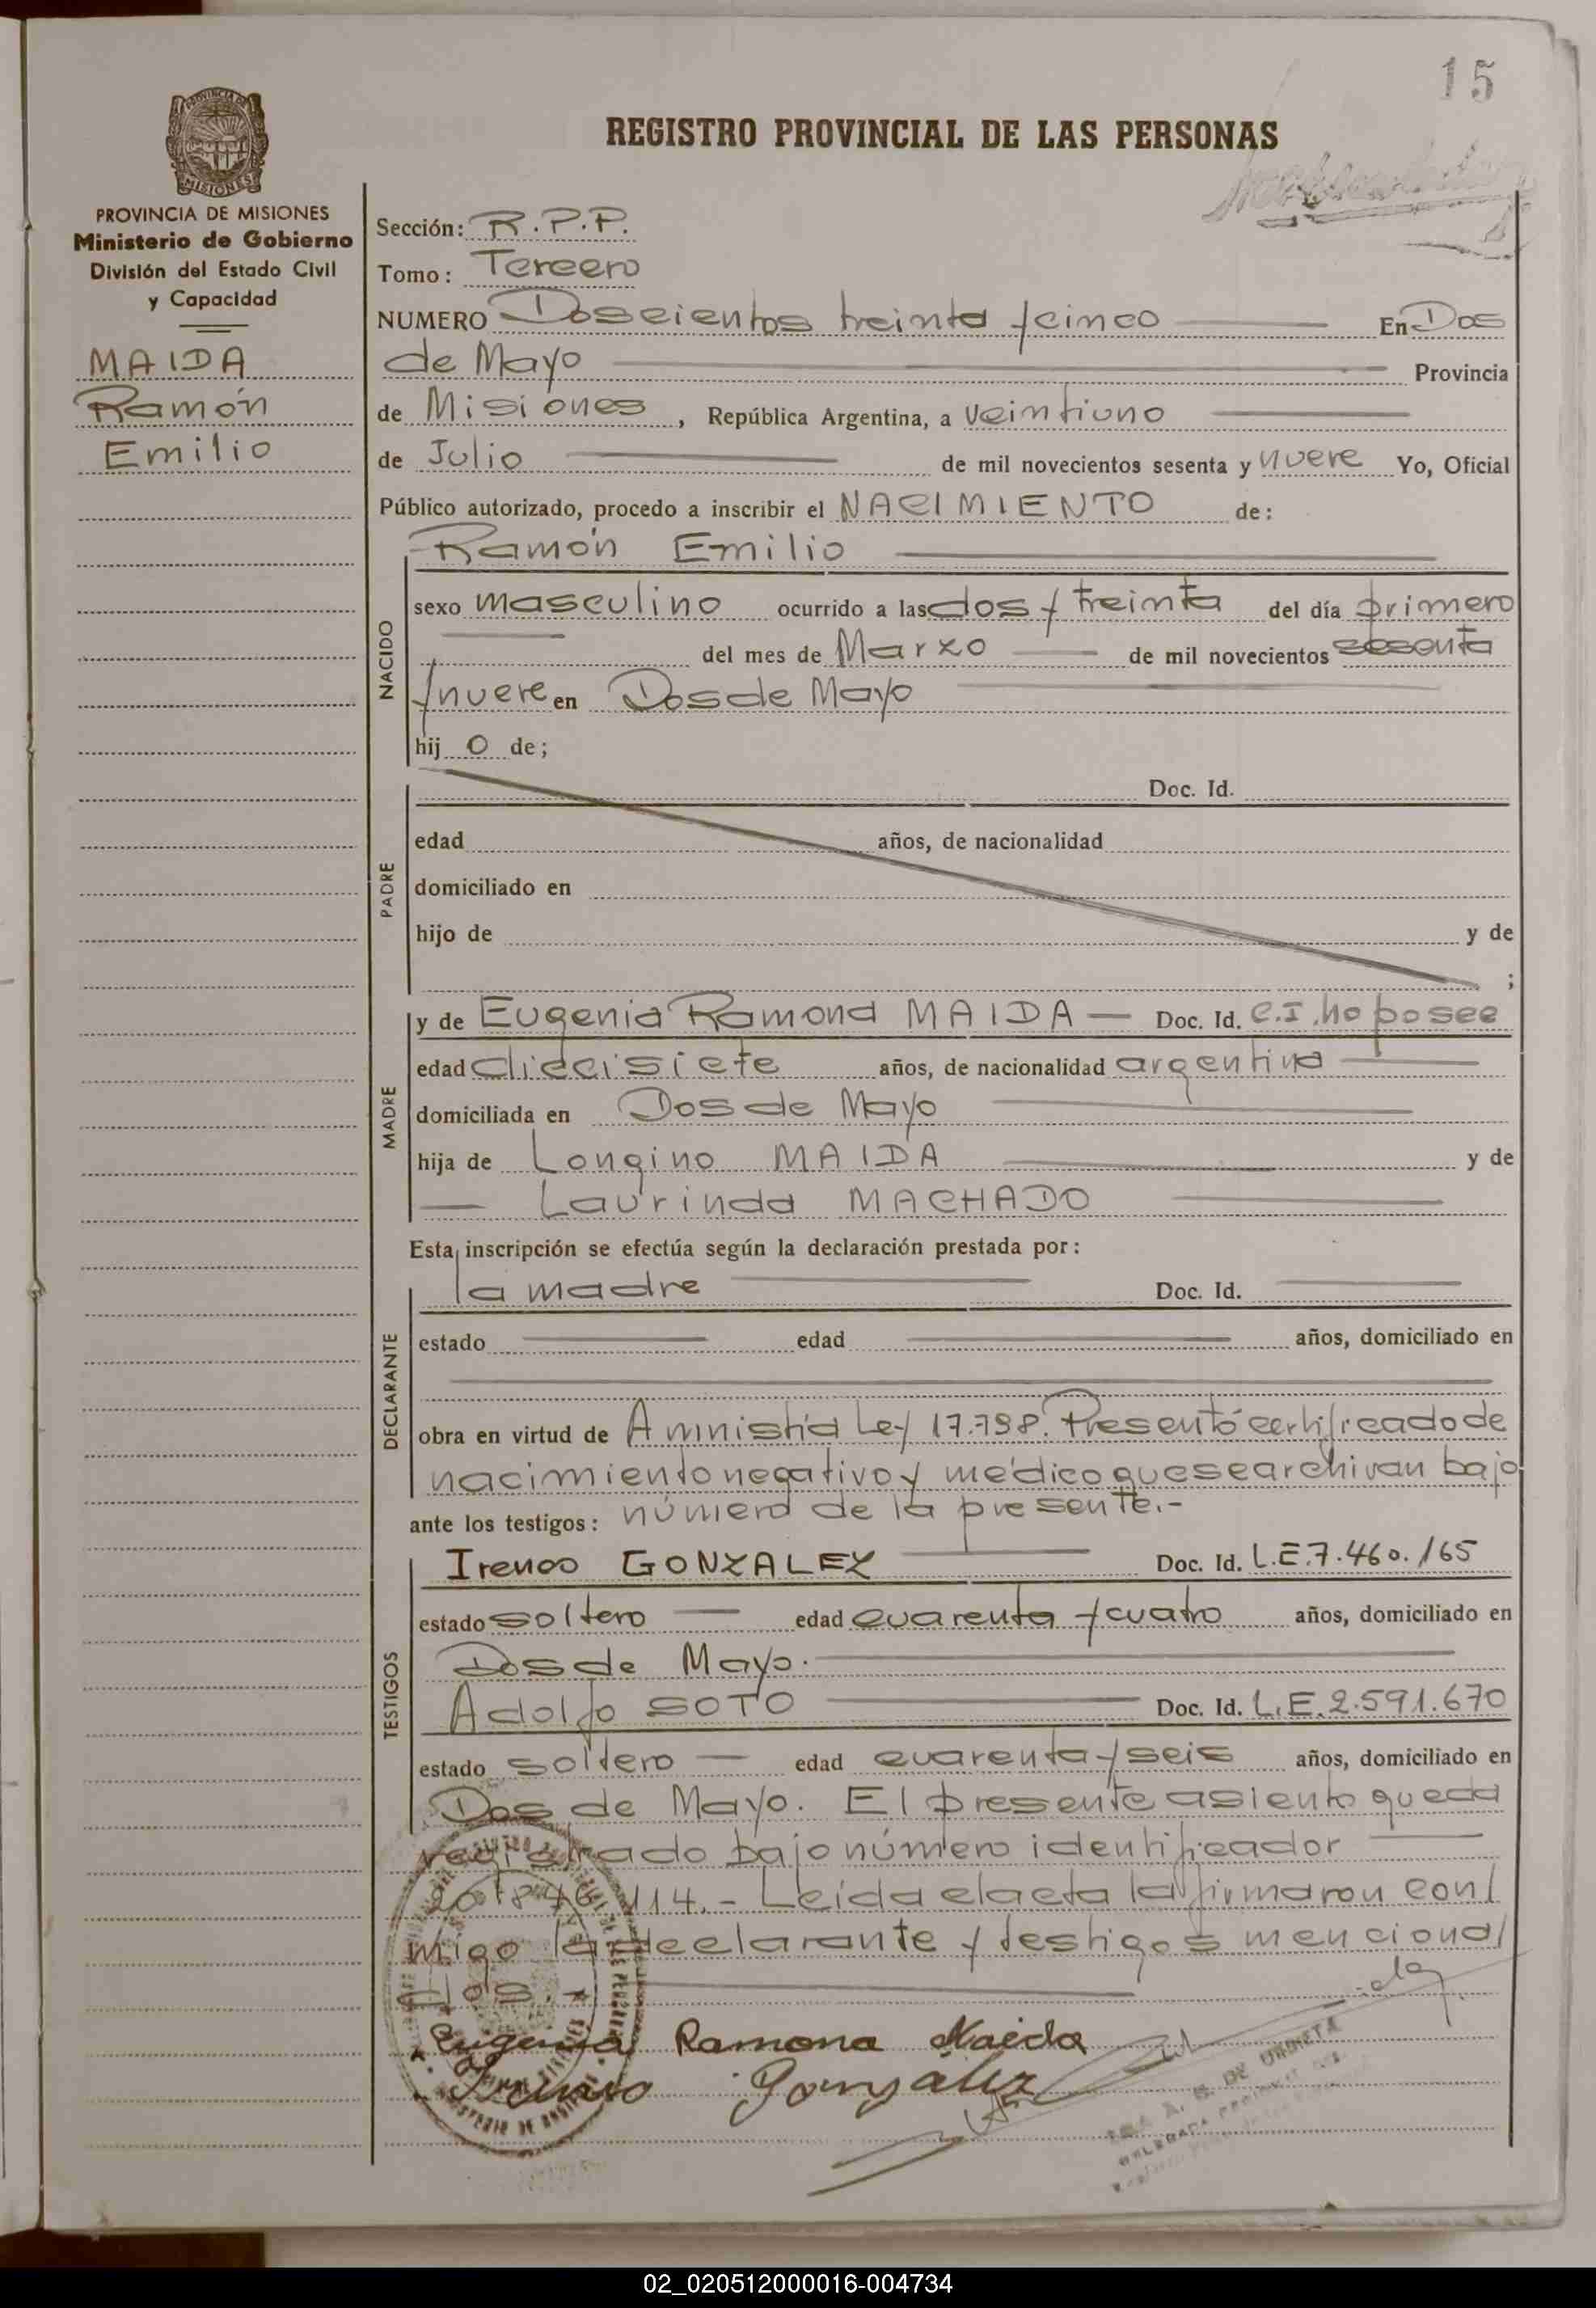 15
REGISTRO PROVINCIAL DE LAS PERSONAS
PROVINCIA DE MISIONES
Ministerio de Gobierno
División del Estado Civil
y Capacidad
MAIDA
Ramón
Emilio
Sección: R.P.P.
Tomo: Tercero
NUMERO Doscientos treinta y cinco En Dos
de Mayo Provincia
de Misiones, República Argentina, a veintiuno
de Julio de mil novecientos sesenta y nueve Yo, Oficial
Público autorizado, procedo a inscribir el NACIMIENTO de:
NACIDO
Ramón Emilio
sexo masculino ocurrido a las dos y treinta del día primero
del mes de Marzo de mil novecientos sesenta
y nueve en Dos de Mayo
hij o de;
PADRE
Doc. Id.
edad años, de nacionalidad
domiciliado en
hijo de y de
;
MADRE
y de Eugenia Ramona MAIDA Doc. Id. C.I. no posee
edad diecisiete años, de nacionalidad argentina
domiciliada en Dos de Mayo
hija de Longino MAIDA y de
Laurinda MACHADO
Esta inscripción se efectúa según la declaración prestada por:
DECLARANTE
la madre Doc. Id.
estado edad años, domiciliado en
obra en virtud de Amnistía Ley 17.798. Presentó certificado de
nacimiento negativo y médico que se archivan bajo
ante los testigos: número de la presente.-
TESTIGOS
Ireneo GONZALEZ Doc. Id. L.E. 7.460.165
estado soltero edad cuarenta y cuatro años, domiciliado en
Dos de Mayo.
Adolfo SOTO Doc. Id. L.E. 2.591.670
estado soltero edad cuarenta y seis años, domiciliado en
Dos de Mayo. El presente asiento queda
registrado bajo número identificador
114.- Leída el acta la firmaron con/
migo la declarante y testigos mencional/
dos.-
Eugenia Ramona Maida
Ireneo Gonzalez
B. DE URRUETA
02_020512000016-004734